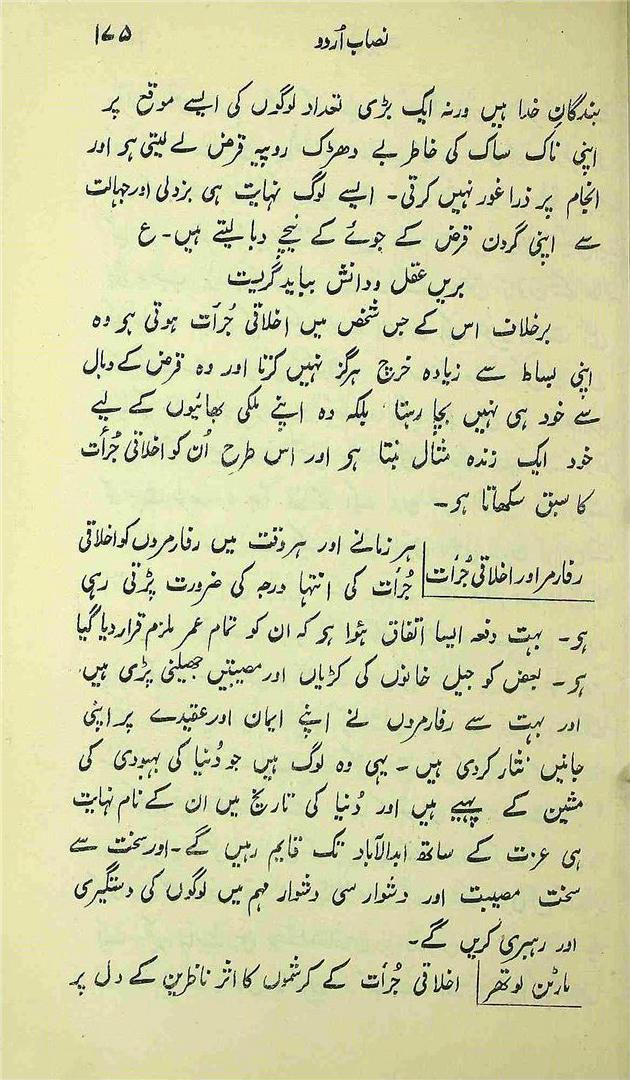 نصاب اُردو ۱۷۵
بندگانِ خدا ہیں ورنہ ایک بڑی تعداد لوگوں کی ایسے موقع پر
اپنی ناک ساک کی خاطر بے دھڑک روپیہ قرض لے لیتی ہو اور
انجام پر ذرا غور نہیں کرتی۔ ایسے لوگ نہایت ہی بزدلی اور جہالت
سے اپنی گردن قرض کے جوئے کے نیچے دبا لیتے ہیں۔ ع
بریں عقل و دانش بباید گریست
برخلاف اس کے جس شخص میں اخلاقی جُرأت ہوتی ہو وہ
اپنی بساط سے زیادہ خرچ ہرگز نہیں کرتا اور وہ قرض کے وبال
سے خود ہی نہیں بچا رہتا بلکہ وہ اپنے ملکی بھائیوں کے لیے
خود ایک زندہ مثال بنتا ہو اور اس طرح اُن کو اخلاقی جُرأت
کا سبق سکھاتا ہو۔
رفارمر اور اخلاقی جُرأت ہر زمانے اور ہر وقت میں رفارمروں کو اخلاقی
جُرأت کی انتہا درجہ کی ضرورت پڑتی رہی
ہو۔ بہت دفعہ ایسا اتفاق ہؤا ہو کہ ان کو تمام عمر ملزم قرار دیا گیا
ہو۔ بعض کو جیل خانوں کی کڑیاں اور مصیبتیں جھیلنی پڑی ہیں
اور بہت سے رفارمروں نے اپنے ایمان اور عقیدے پر اپنی
جانیں نثار کردی ہیں۔ یہی وہ لوگ ہیں جو دُنیا کی بہبودی کی
مشین کے پہیے ہیں اور دُنیا کی تاریخ میں ان کے نام نہایت
ہی عزت کے ساتھ ابدالآباد تک قایم رہیں گے۔ اور سخت سے
سخت مصیبت اور دشوار سی دشوار مہم میں لوگوں کی دستگیری
اور رہبری کریں گے۔
مارٹن لوتھر اخلاقی جُرأت کے کرشموں کا اثر ناظرین کے دل پر